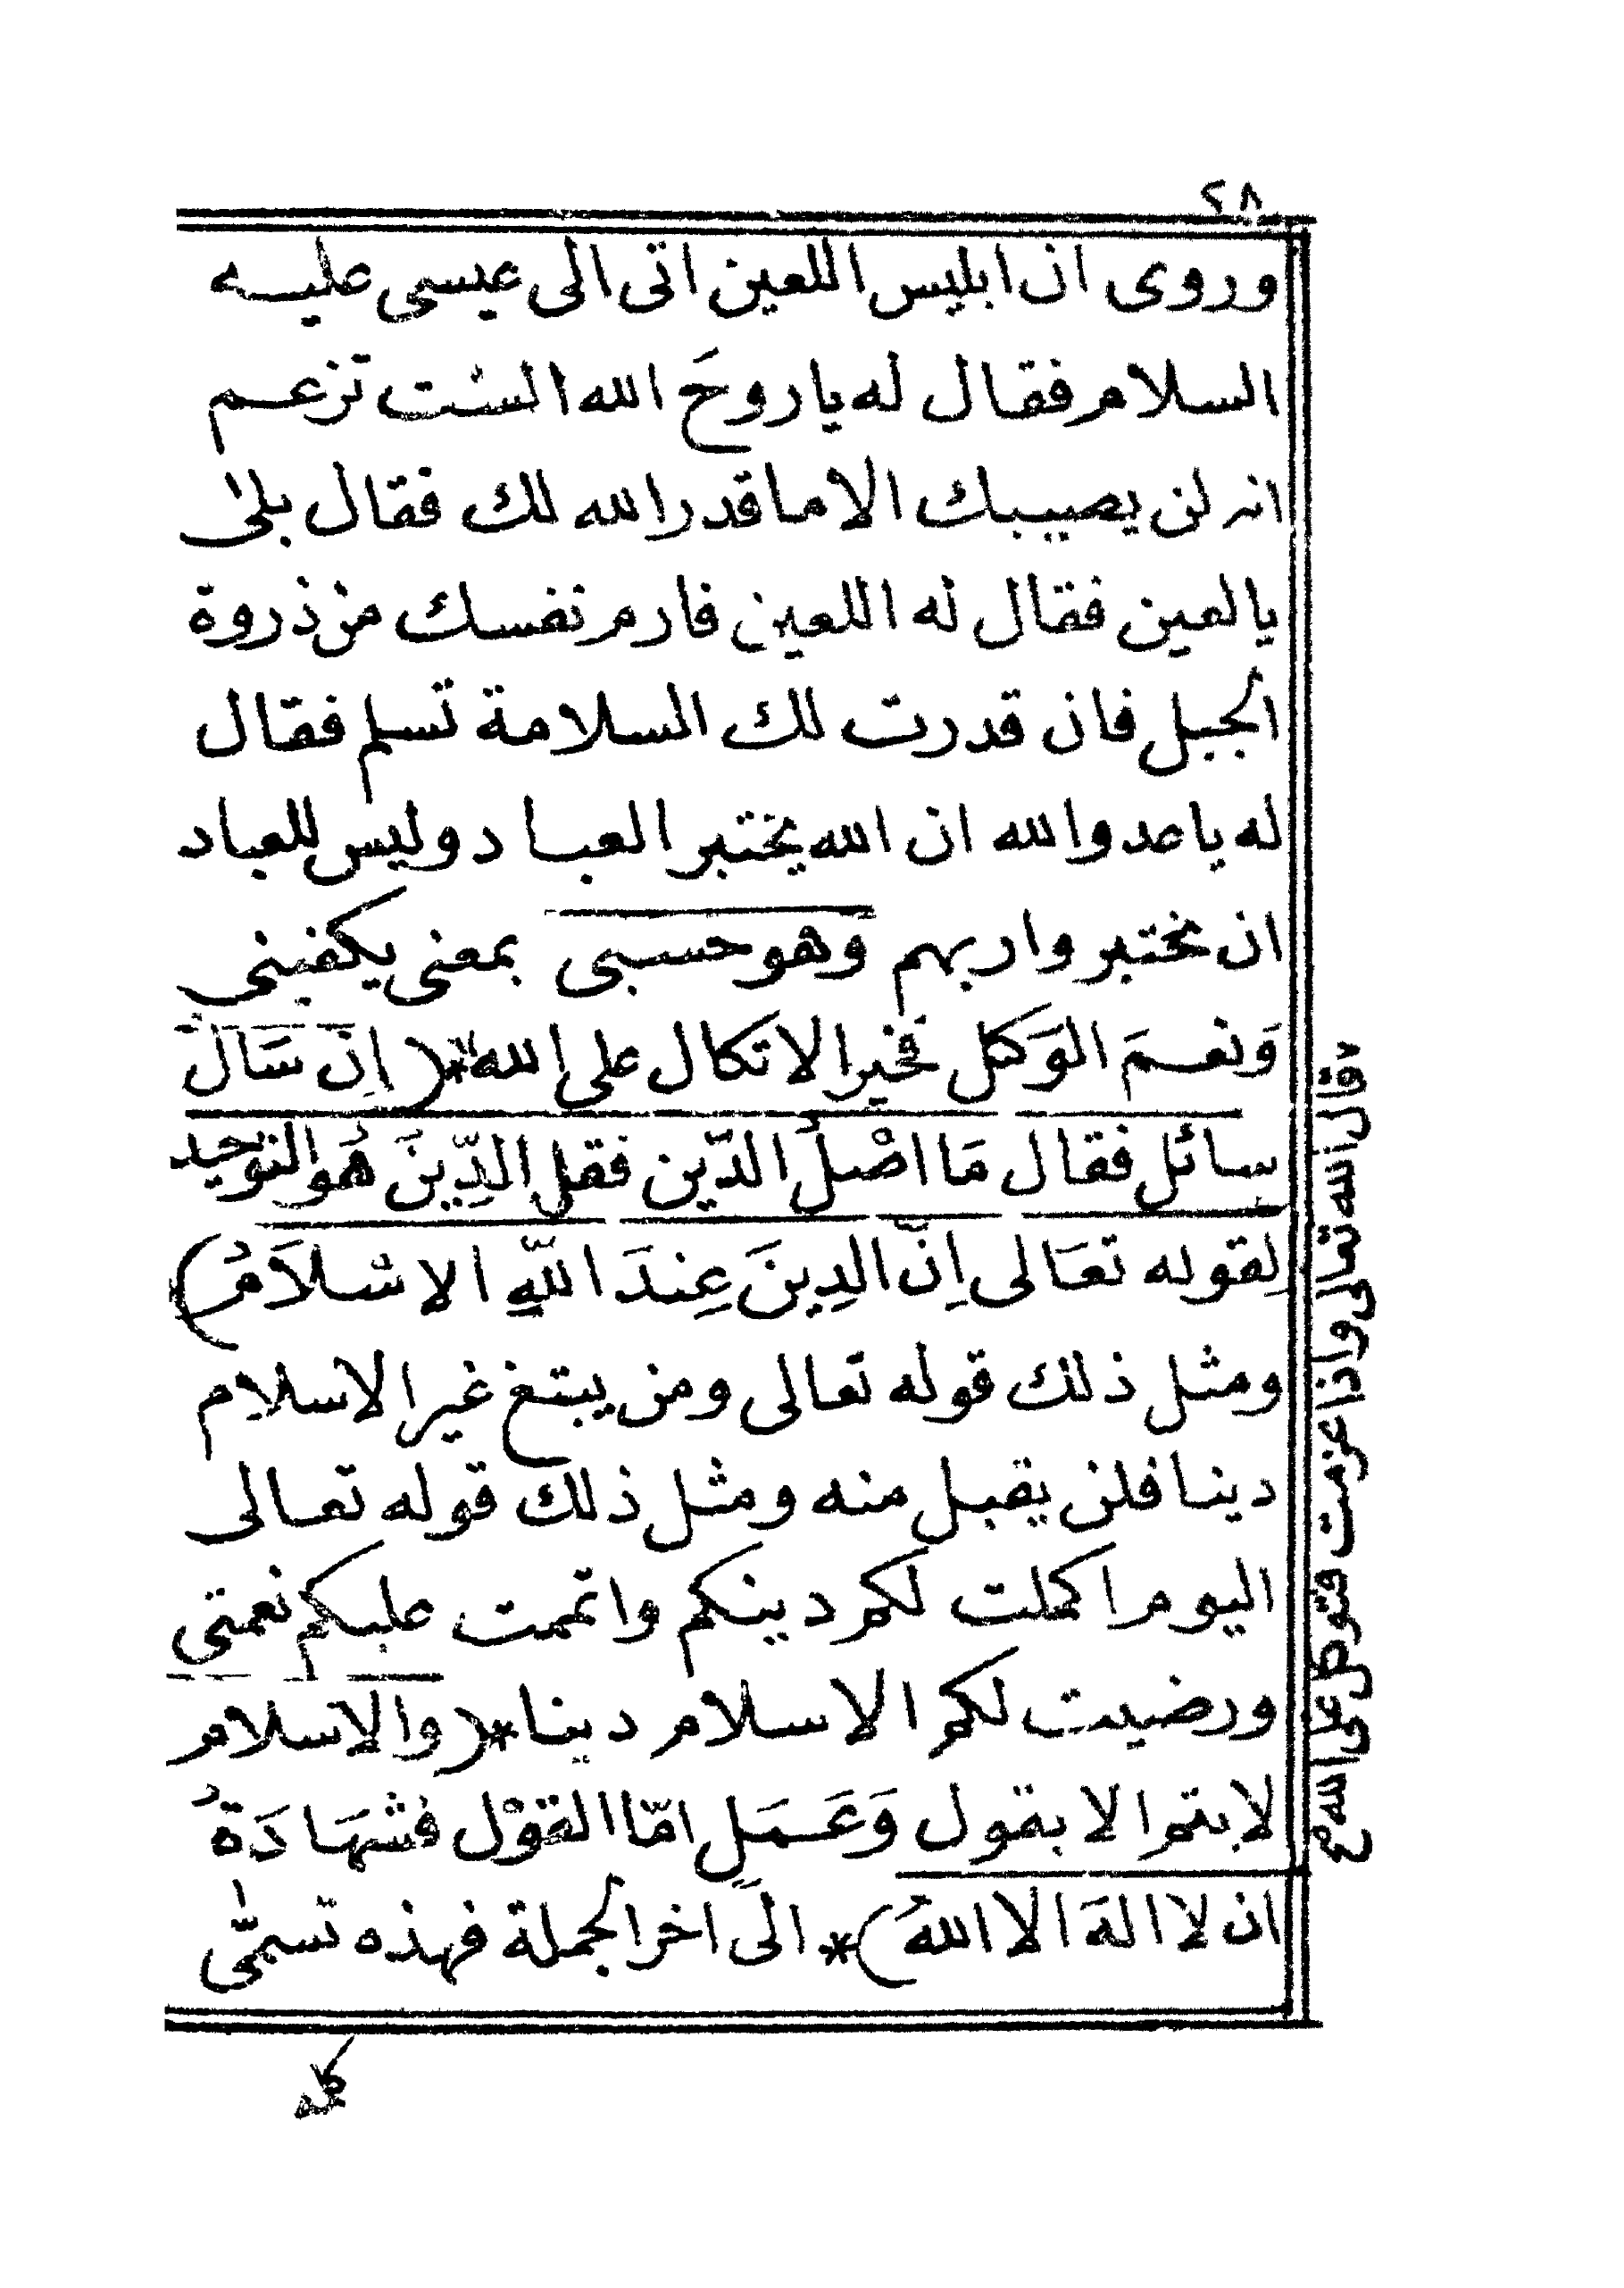 ٢٨
وروى ان ابليس اللعين اتى الى عيسى عليه
السلام فقال له يا روحَ الله الست تزعم
انه لن يصيبك الا ما قدر الله لك فقال بلى
يا لعين فقال له اللعين فارم نفسك من ذروة
الجبل فان قدرت لك السلامة تسلم فقال
له يا عدو الله ان الله يختبر العباد وليس للعباد
ان يختبروا ربهم وَهو حسبى بمعنى يكفينى
وَنعمَ الوَكيل فخير الاتكال على الله * ( اِن سَال
سائل فقال مَا اصْل الدّين فقل الدِّينَ هُو التوحيد
لقوله تعَالى اِنَّ الدِينَ عِندَ اللّهِ الاسْلاَمُ )
ومثل ذلك قوله تعالى ومن يبتغ غير الاسلام
دينا فلن يقبل منه ومثل ذلك قوله تعالى
اليوم اكملت لكم دينكم واتممت عليكم نعمتى
ورضيت لكم الاسلام دينا * ( والاسلام
لا يتم الا بقول وَعَمَل امّا القوْل فشهَادَةُ
ان لا الهَ الا اللهُ ) * الى اخر الجملة فهذه تسمّى
وقال الله تعالى واذا عزمت فتوكل على الله
كلمة